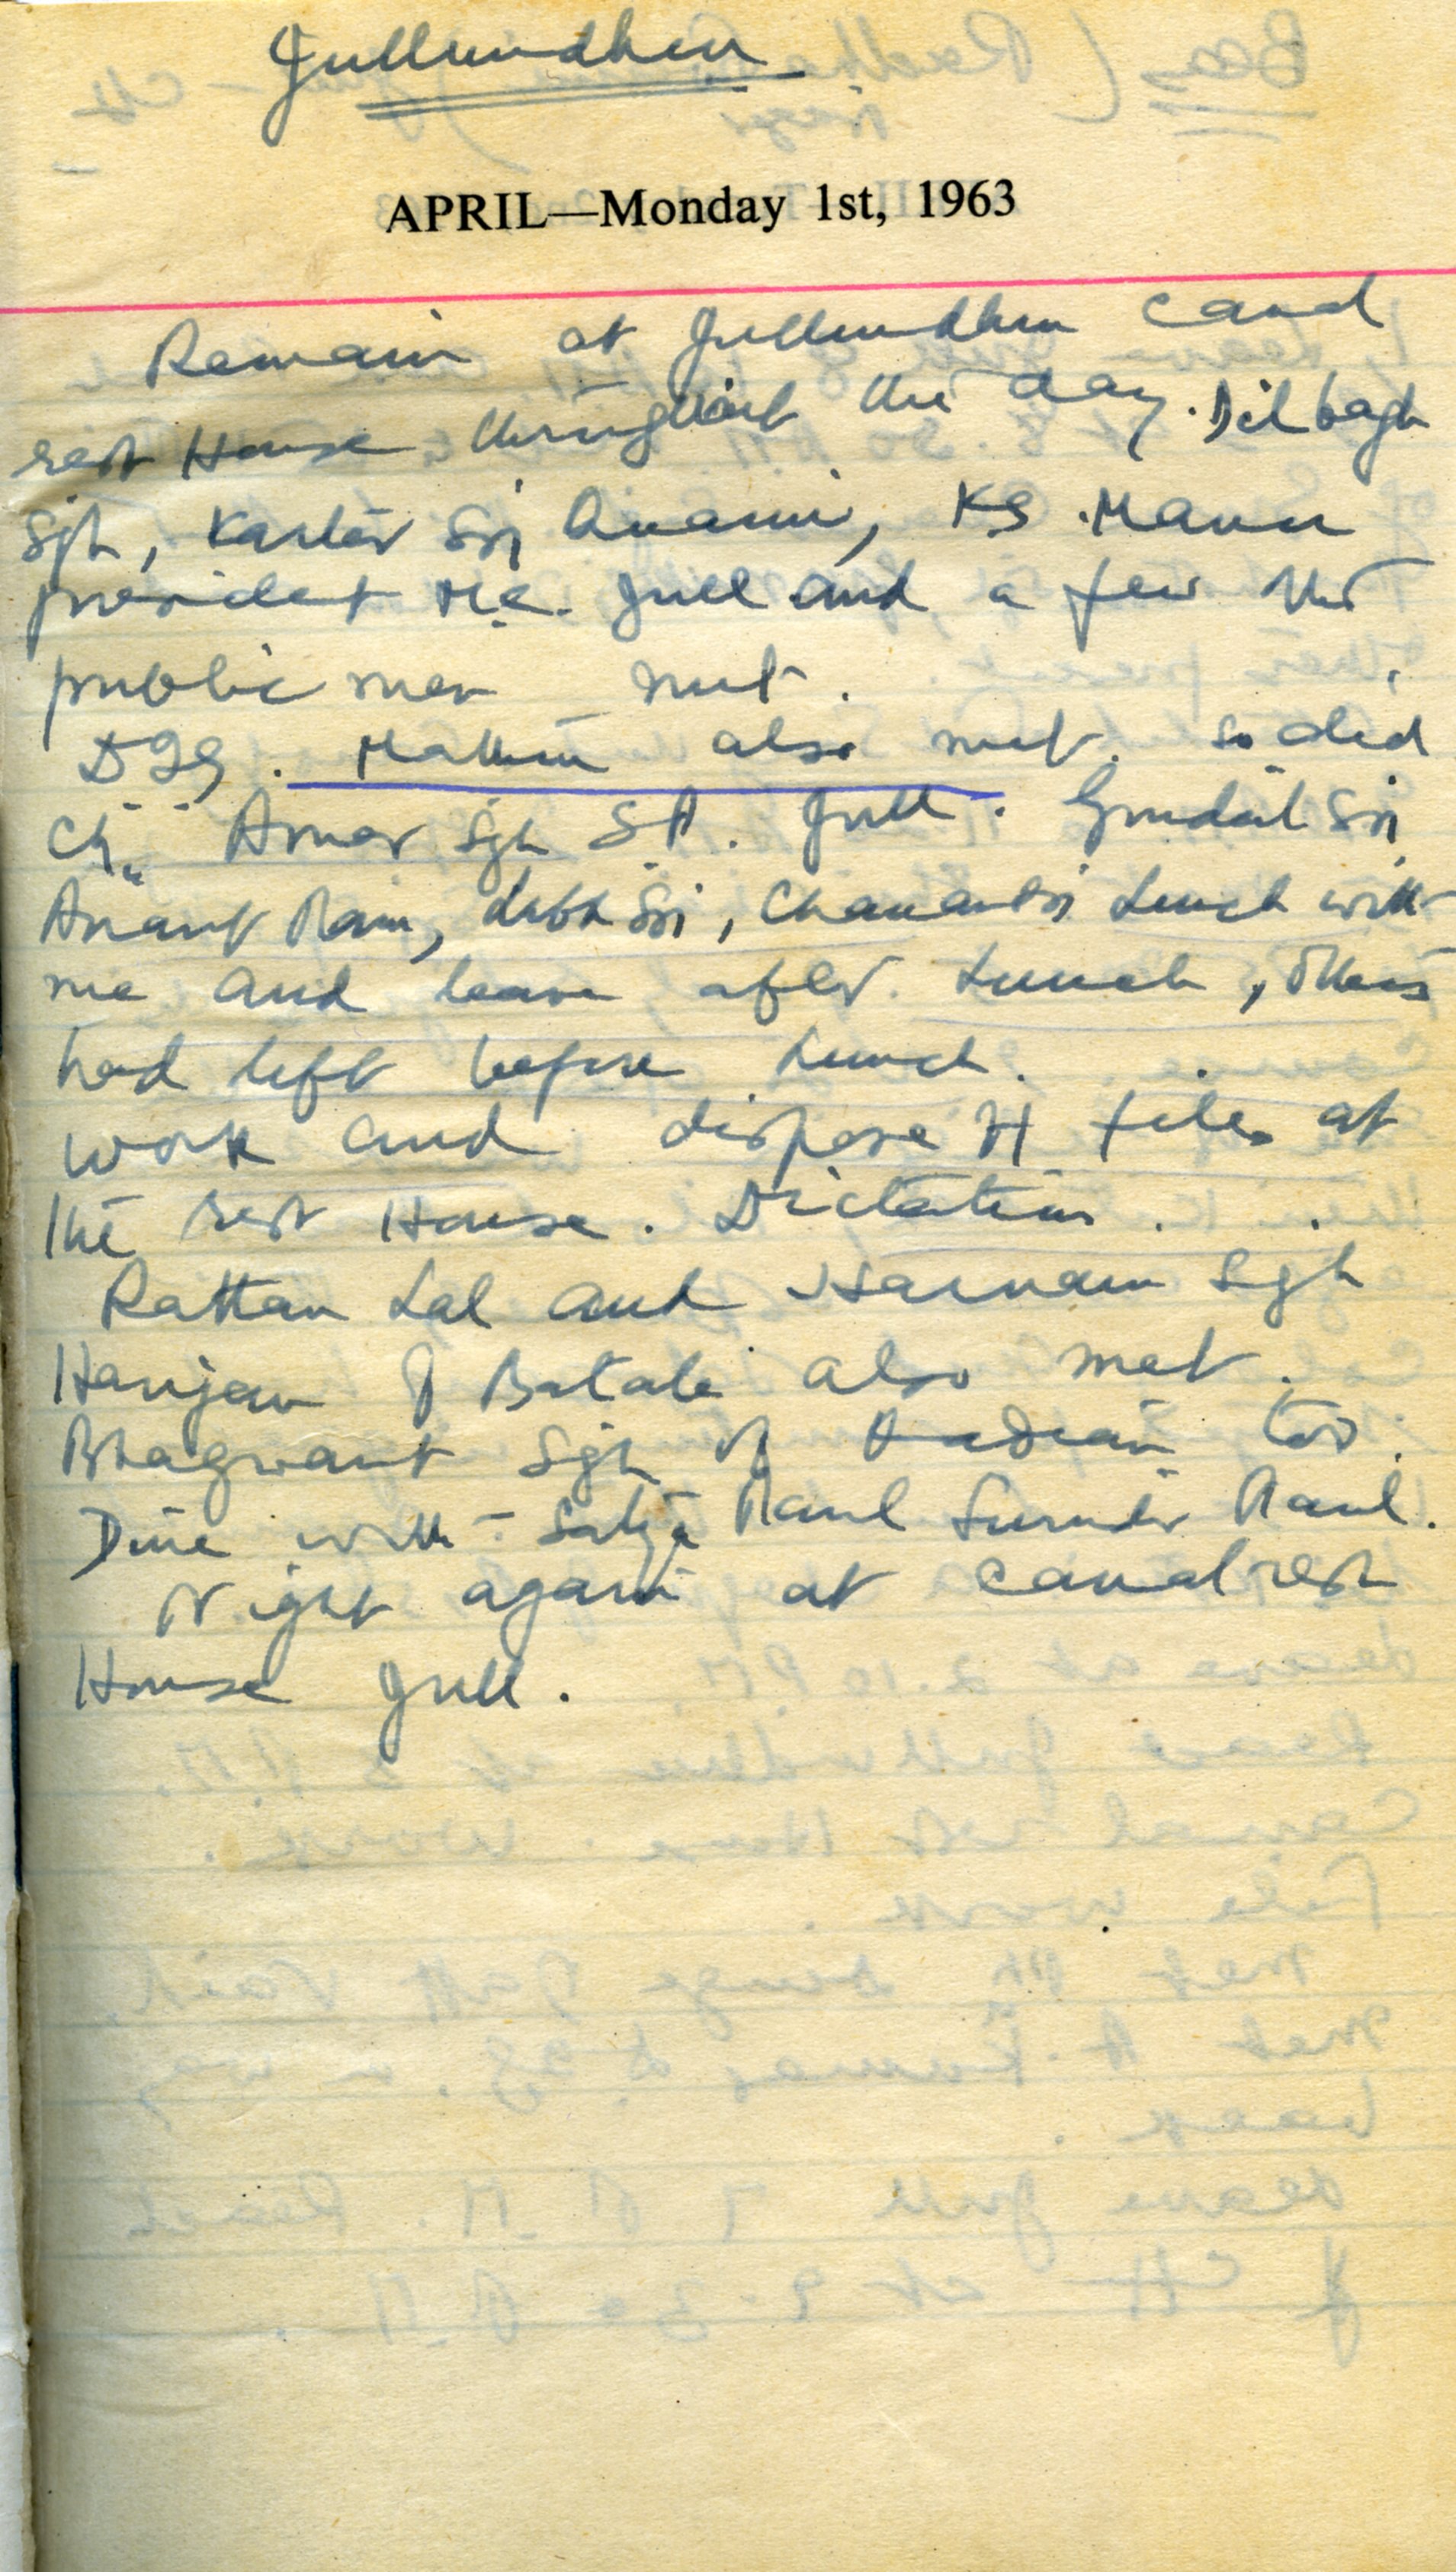 Jullundhur
APRIL—Monday 1st, 1963
Remain at Jullundhur canal
rest House throughout the day. Dilbagh
Sgh, Kartar Sgj, KS. Mann
president M.C. Jull and a few other
public men met.
DIG. Mathur also met. So did
Ch. Amar Sgh S.P. Jull. Gurdial Sgj
Anant Ram, Labh Sgj, Chanan Sgj Lunch with
me and leave after Lunch, others
had left before Lunch.
Work and dispose of files at
the rest House. Dictation.
Rattan Lal and Harnam Sgh
Harijan of Batala also met.
Bhagwant Sgh of Kadian too.
Dine with Satya Paul Surinder Paul.
Night again at canal rest
House Jull.